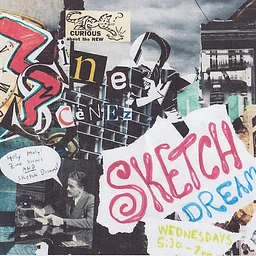 CURIOUS
about the NEW
ine
CéNEZ
Holy Moly!
Zine
AND
Sketch Dream
SKETCH
DREAM
WEDNESDAYS
5:30 - 7